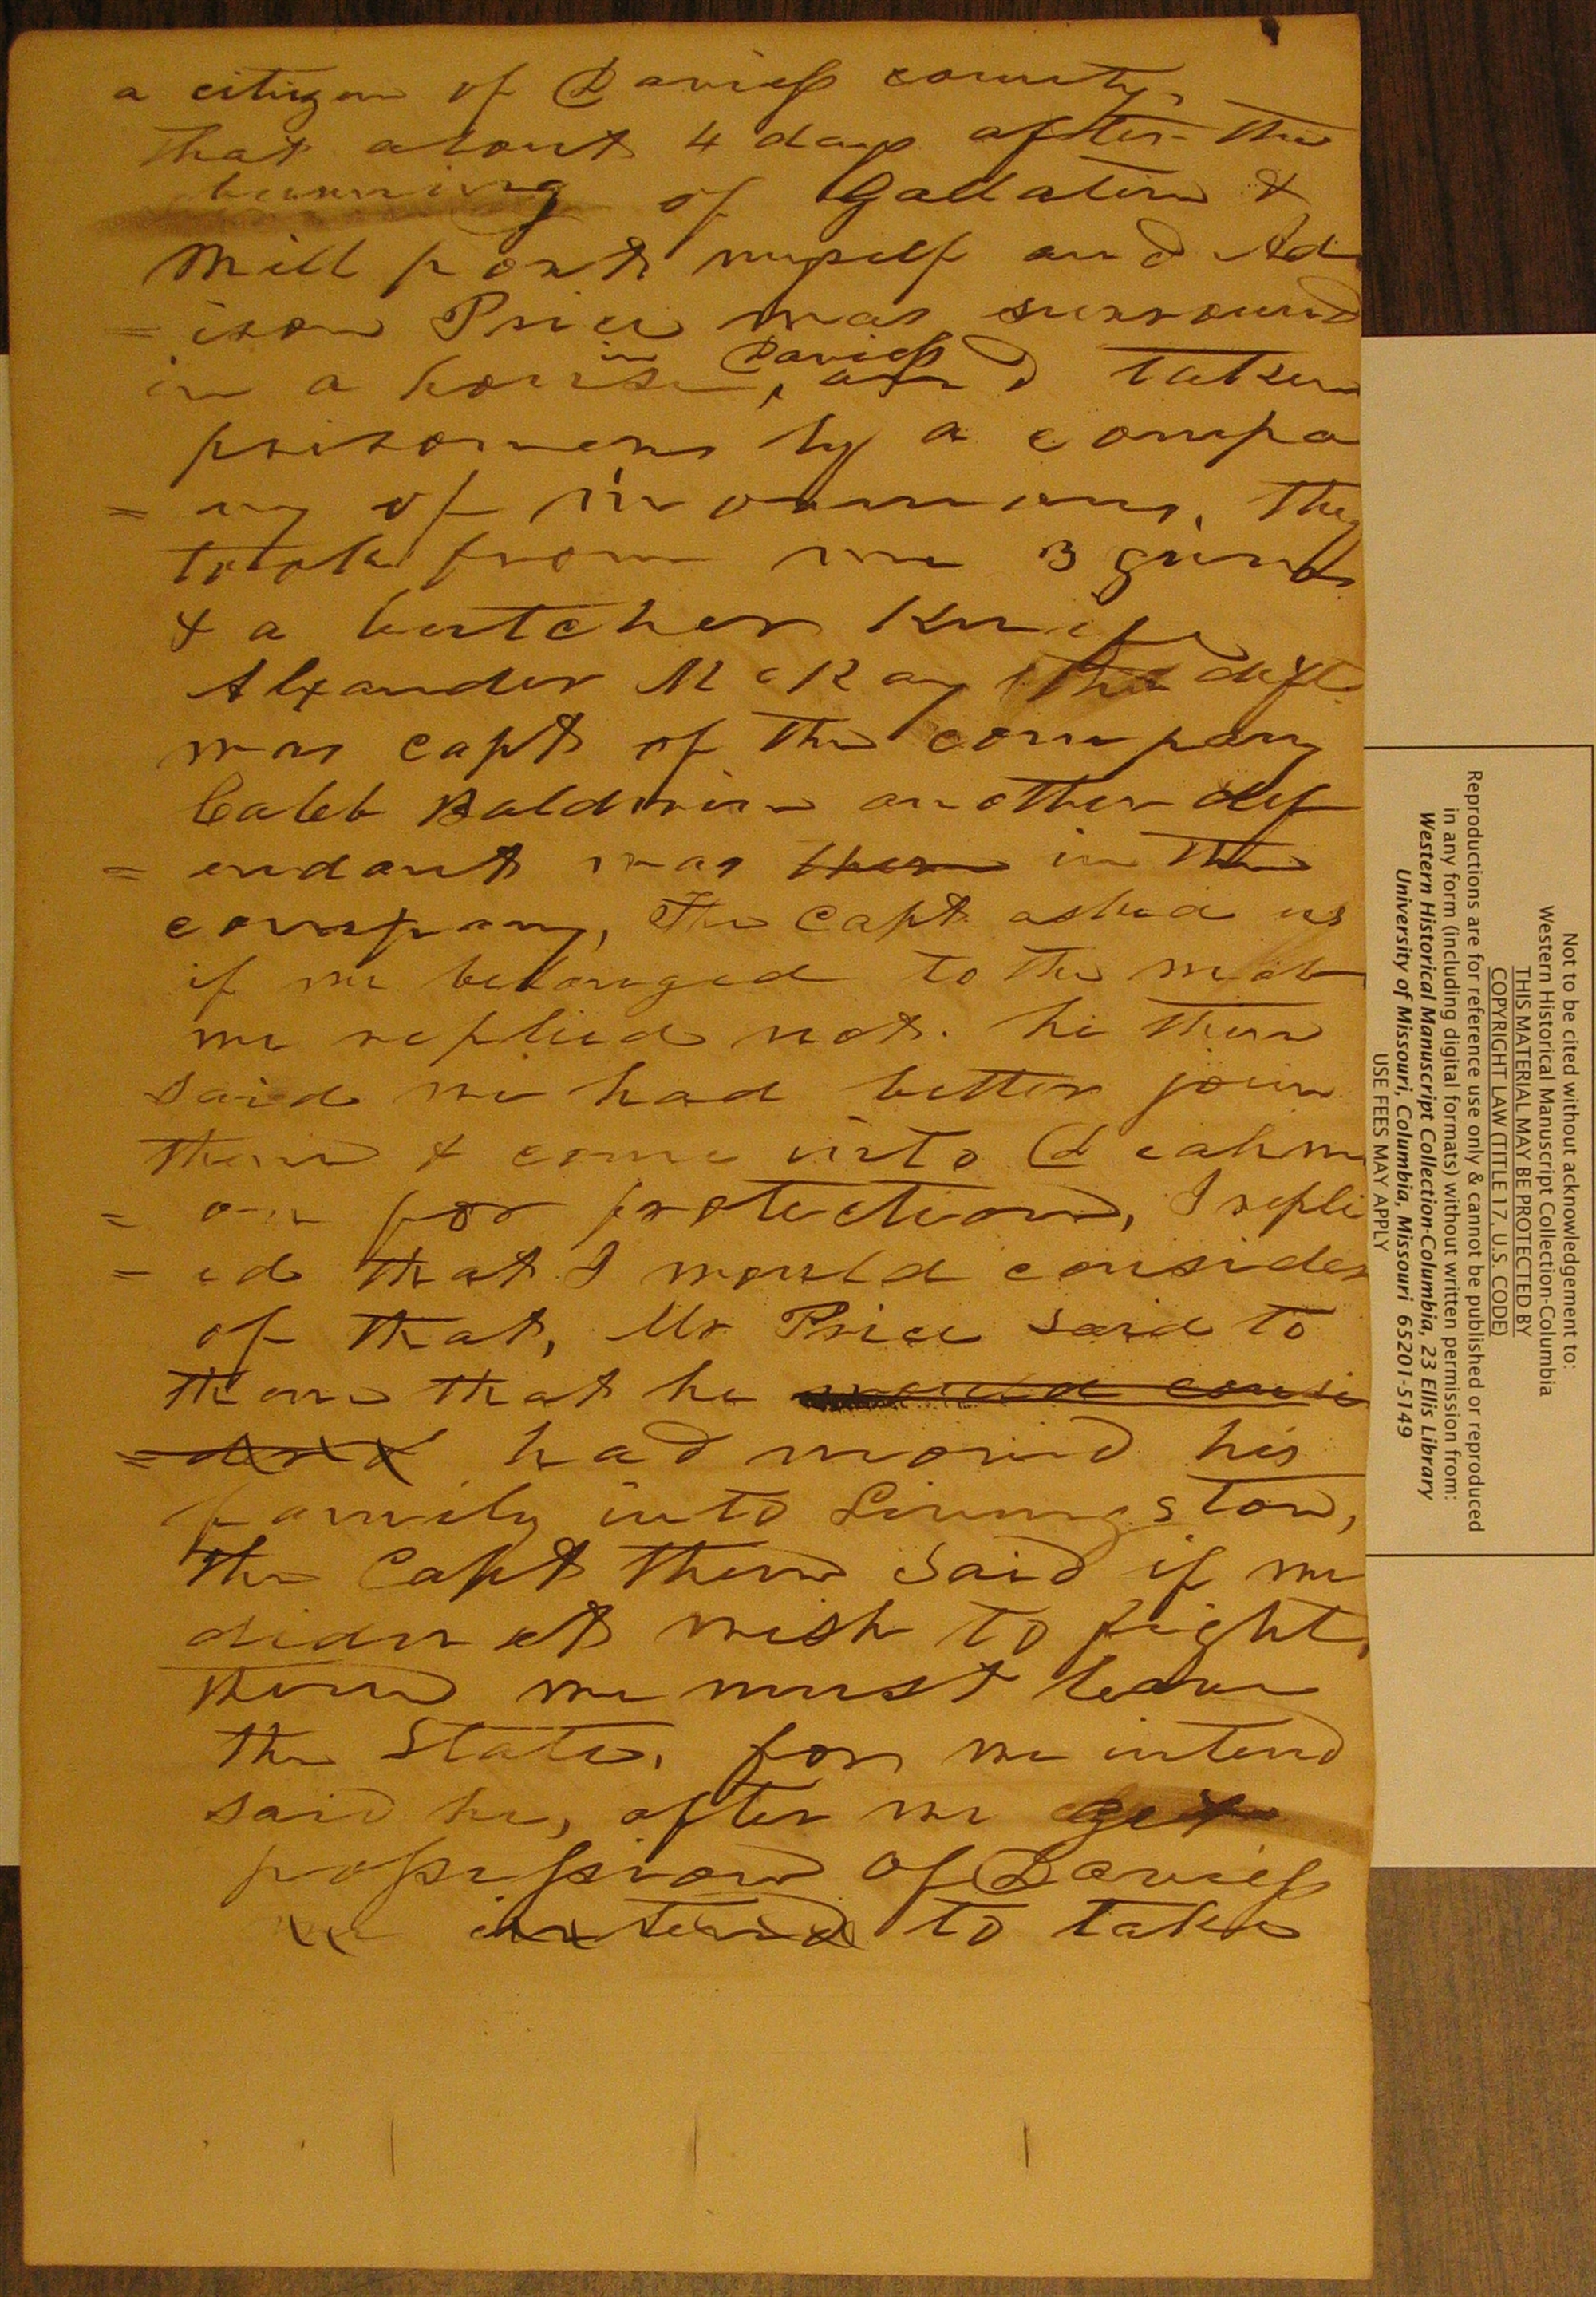 a citizen of Daviess county,
that about 4 days after the
burning of Gallatin &
Mill port myself and Ad
= ison Price was surround
in a house in Daviess, and taken
prisoners by a compa
= ny of mormons, they
took from me 3 guns
& a butcher Knife
Alexander McKay the deft.
was capt of the company
Caleb Baldwin another def
= endant was then in the
company, The Capt asked us
if we belonged to the mob
we replied not. he then
said we had better join
them & come into Diahm
= on for protection, I repli
= ed that I would consider
of that, Mr Price said to
them that he would consi
= der had moved his
family into Livingston,
the Capt then said if we
did not wish to fight,
then we must leave
the State, for we intend
said he, after we get
possession of Daviess
we intend to take
Not to be cited without acknowledgement to:
Western Historical Manuscript Collection-Columbia
THIS MATERIAL MAY BE PROTECTED BY
COPYRIGHT LAW (TITLE 17, U.S. CODE)
Reproductions are for reference use only & cannot be published or reproduced
in any form (including digital formats) without written permission from:
Western Historical Manuscript Collection-Columbia, 23 Ellis Library
University of Missouri, Columbia, Missouri 65201-5149
USE FEES MAY APPLY